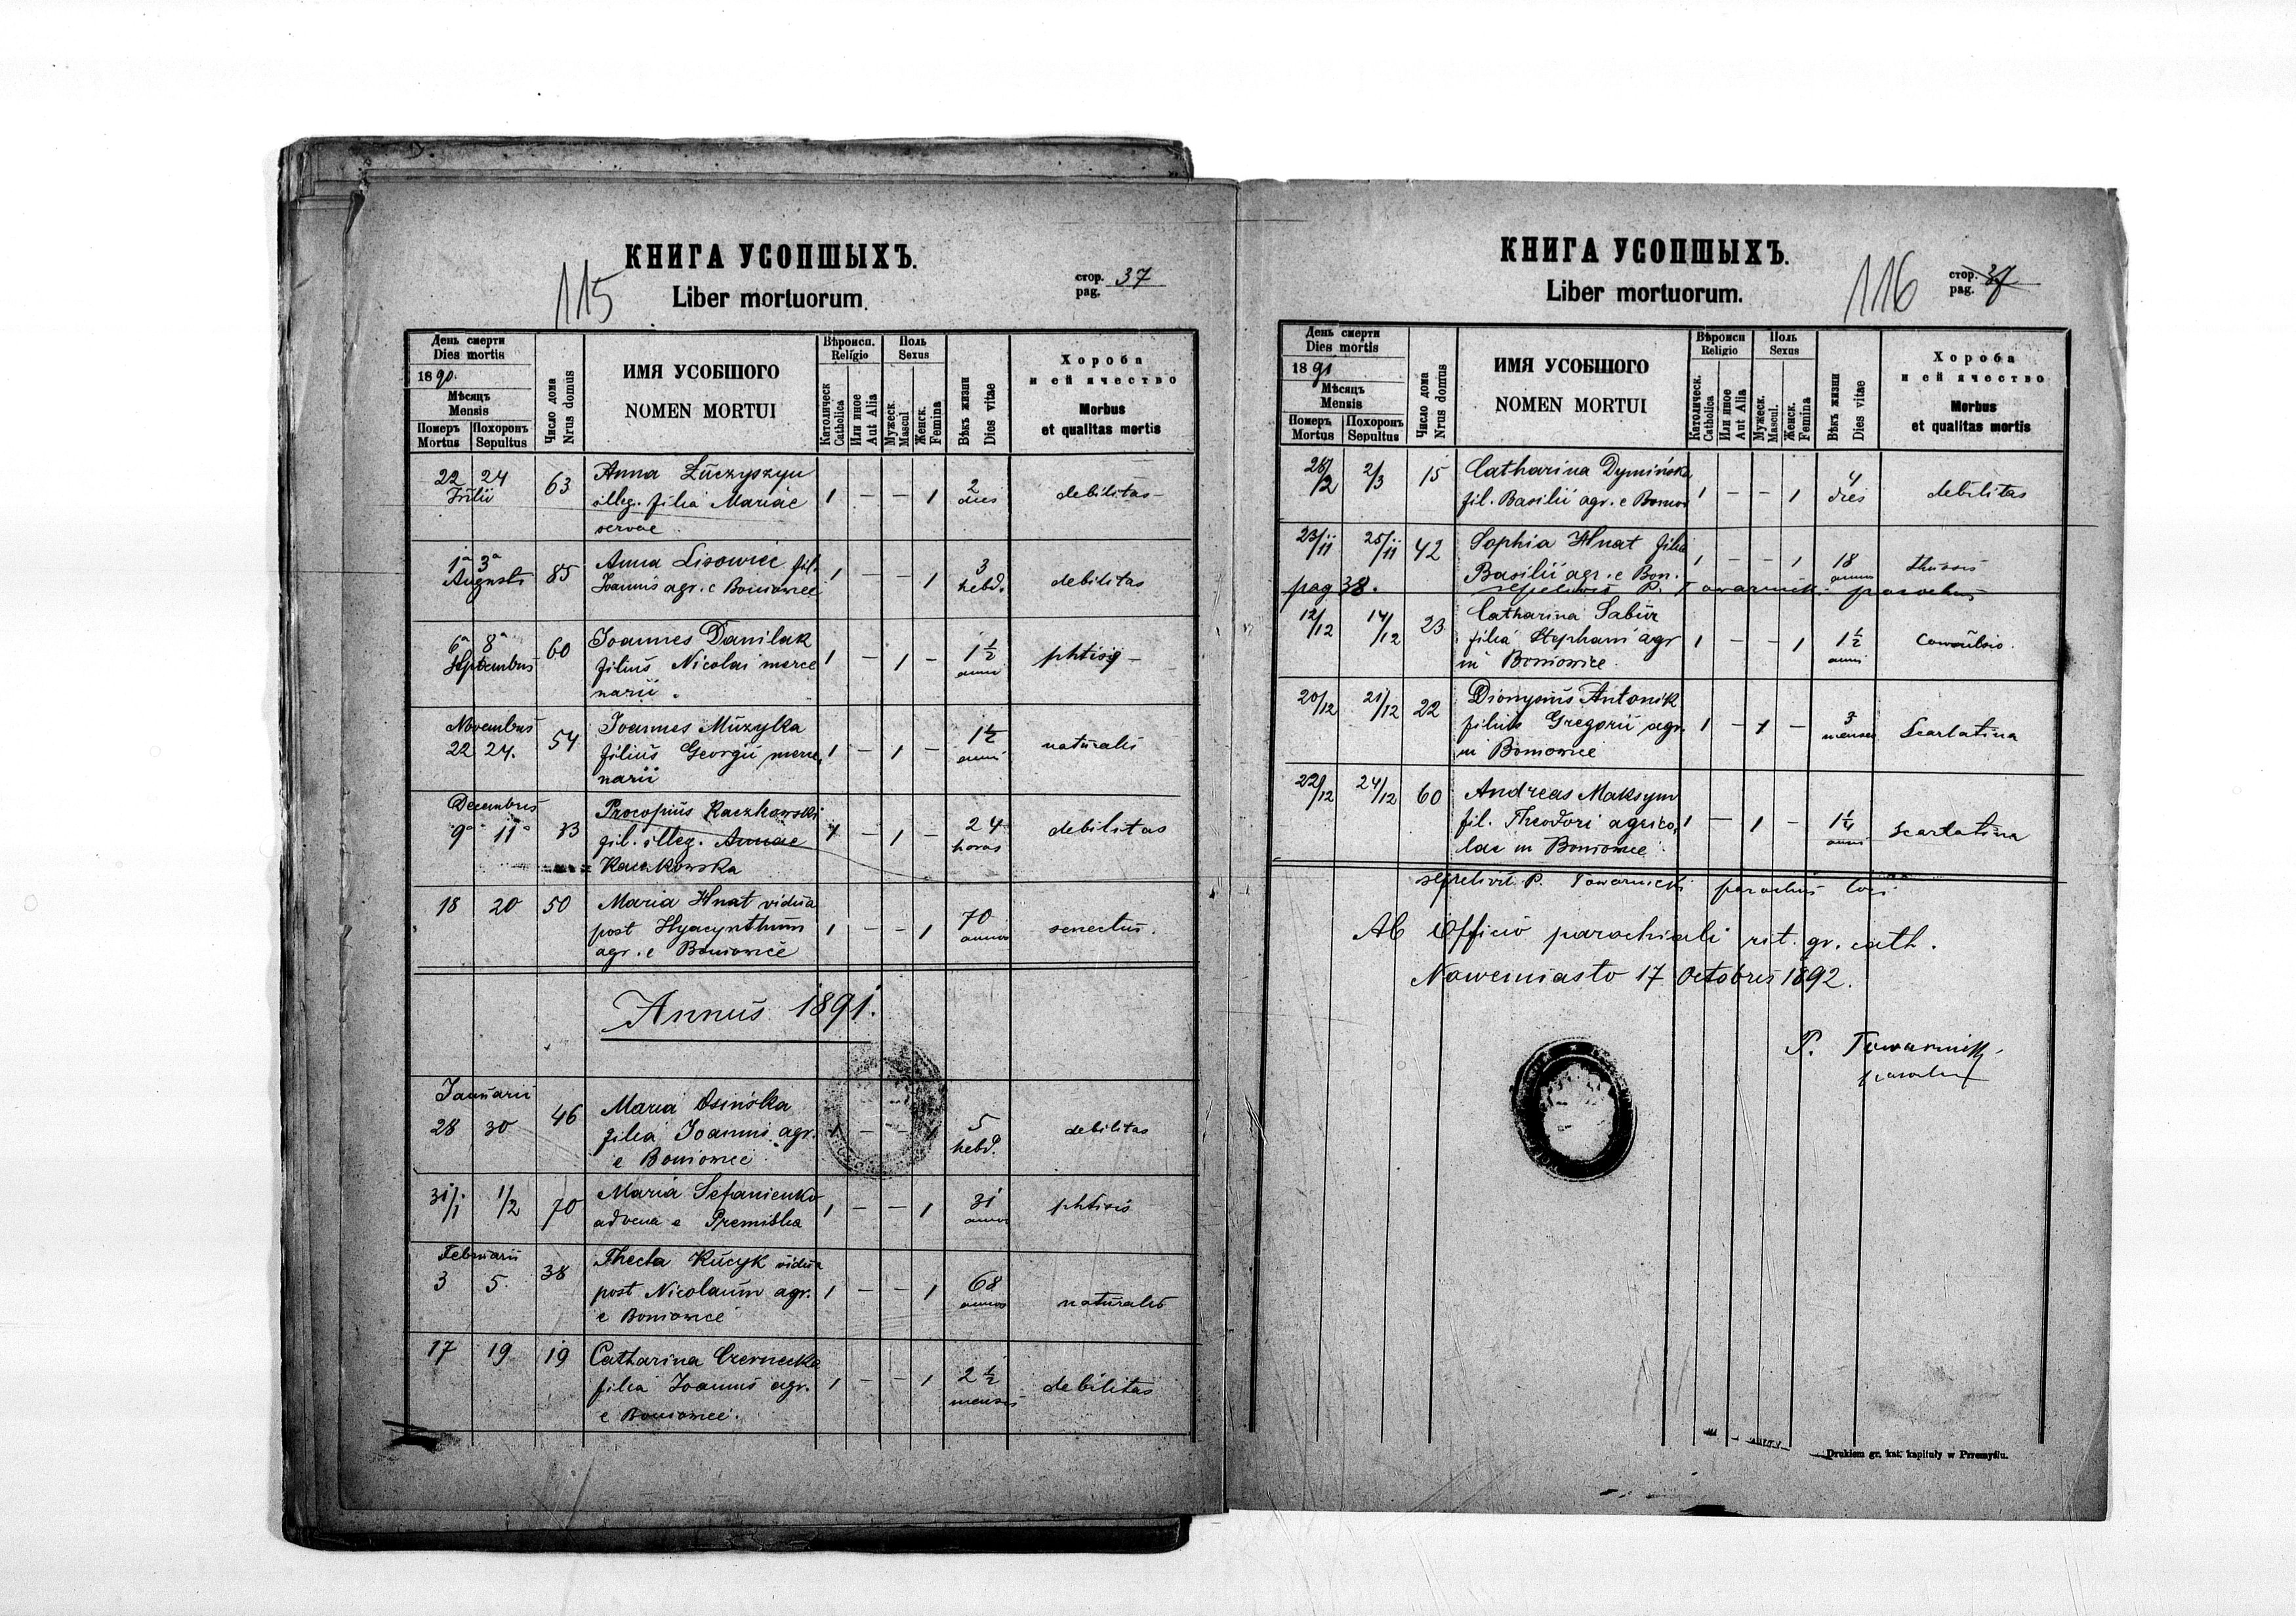 КНИГА УСОПШЫХЪ.
115
Liber mortuorum.
стор. 37
pag.
День смерти
Dies mortis
1890.
Мѣсяцъ
Mensis
Померъ Похоронъ
Mortus Sepultus
Число дома
Nrus domus
ИМЯ УСОБШОГО
NOMEN MORTUI
Вѣроисп.
Religio
Католическ
Catholica
Или иное
Aut Alia
Поль
Sexus
Мужеск.
Mascul
Женск.
Femina
Вѣкъ жизни
Dies vitae
Хороба
и ей ячество
Morbus
et qualitas mortis
22 24 63 Anna Łuczyszyn
Julii illeg. filia Mariae 1 — — 1 2 dies debilitas —
servae
1a 3a Anna Lisowicz fil.
Augusti 85 Joannis agr. e Boniowice 1 — — 1 3 hebd. debilitas
6a 8a 60 Joannes Danilak
Septembris filius Nicolai merce 1 — 1 — 1½ anni phtisis —
narii.
Novembris Joannes Muzyka
22 24. 54 filius Georgii merce 1 — 1 — 1½ anni naturalis
narii
Decembris Procopius Raczkowski
9a 11a 33 fil. illeg. Annae 1 — 1 — 24 horas debilitas
Raczkowska
18 20 50 Maria Hnat vidua
post Hyacynthum 1 — — 1 70 annos senectus.
agr. e Boniowice
Annus 1891.
Januarii Maria Osińska
28 30 46 filia Joannis agr. 1 — — 1 5 hebd. debilitas
e Boniowice
31/1 1/2 70 Maria Stefanienko 1 — — 1 31 annos phtisis
advena e Premislia
Februarii Thecla Kucyk vidua
3 5. 38 post Nicolaum agr. 1 — — 1 68 annos naturalis
e Boniowice
17 19 19 Catharina Czernecka
filia Joannis agr. 1 — — 1 2½ menses debilitas
e Boniowice.
КНИГА УСОПШЫХЪ.
116
Liber mortuorum.
стор. 37
pag.
День смерти
Dies mortis
1891
Мѣсяцъ
Mensis
Померъ Похоронъ
Mortus Sepultus
Число дома
Nrus domus
ИМЯ УСОБШОГО
NOMEN MORTUI
Вѣроисп
Religio
Католическ.
Catholica
Или иное
Aut Alia
Поль
Sexus
Мужеск.
Mascul.
Женск.
Femina
Вѣкъ жизни
Dies vitae
Хороба
и ей ячество
Morbus
et qualitas mortis
28/2 2/3 15 Catharina Dymińska
fil. Basilii agr. e Boniow 1 — — 1 4 dies debilitas
23/11 25/11 42 Sophia Hnat filia
Basilii agr. e Bon. 1 — — 1 18 annos thussis
pag 38. sepelivit P. Towarnicki parochus
12/12 14/12 23 Catharina Sabur
filia Stephani agr 1 — — 1 1½ anni convulsio.
in Boniowice.
20/12 21/12 22 Dionysius Antonik
filius Gregorii agr. 1 — 1 — 3 menses Scarlatina
in Boniowice
22/12 24/12 60 Andreas Maksym
fil. Theodori agrico 1 — 1 — 1¼ anni scarlatina
lae in Boniowice
sepelivit P. Towarnicki parochus loci
Ab Officio parochiali rit. gr. cath.
Nowemiasto 17 Octobris 1892.
P. Towarnicki
parochus
Drukiem gr. kat. kapituły w Przemyślu.